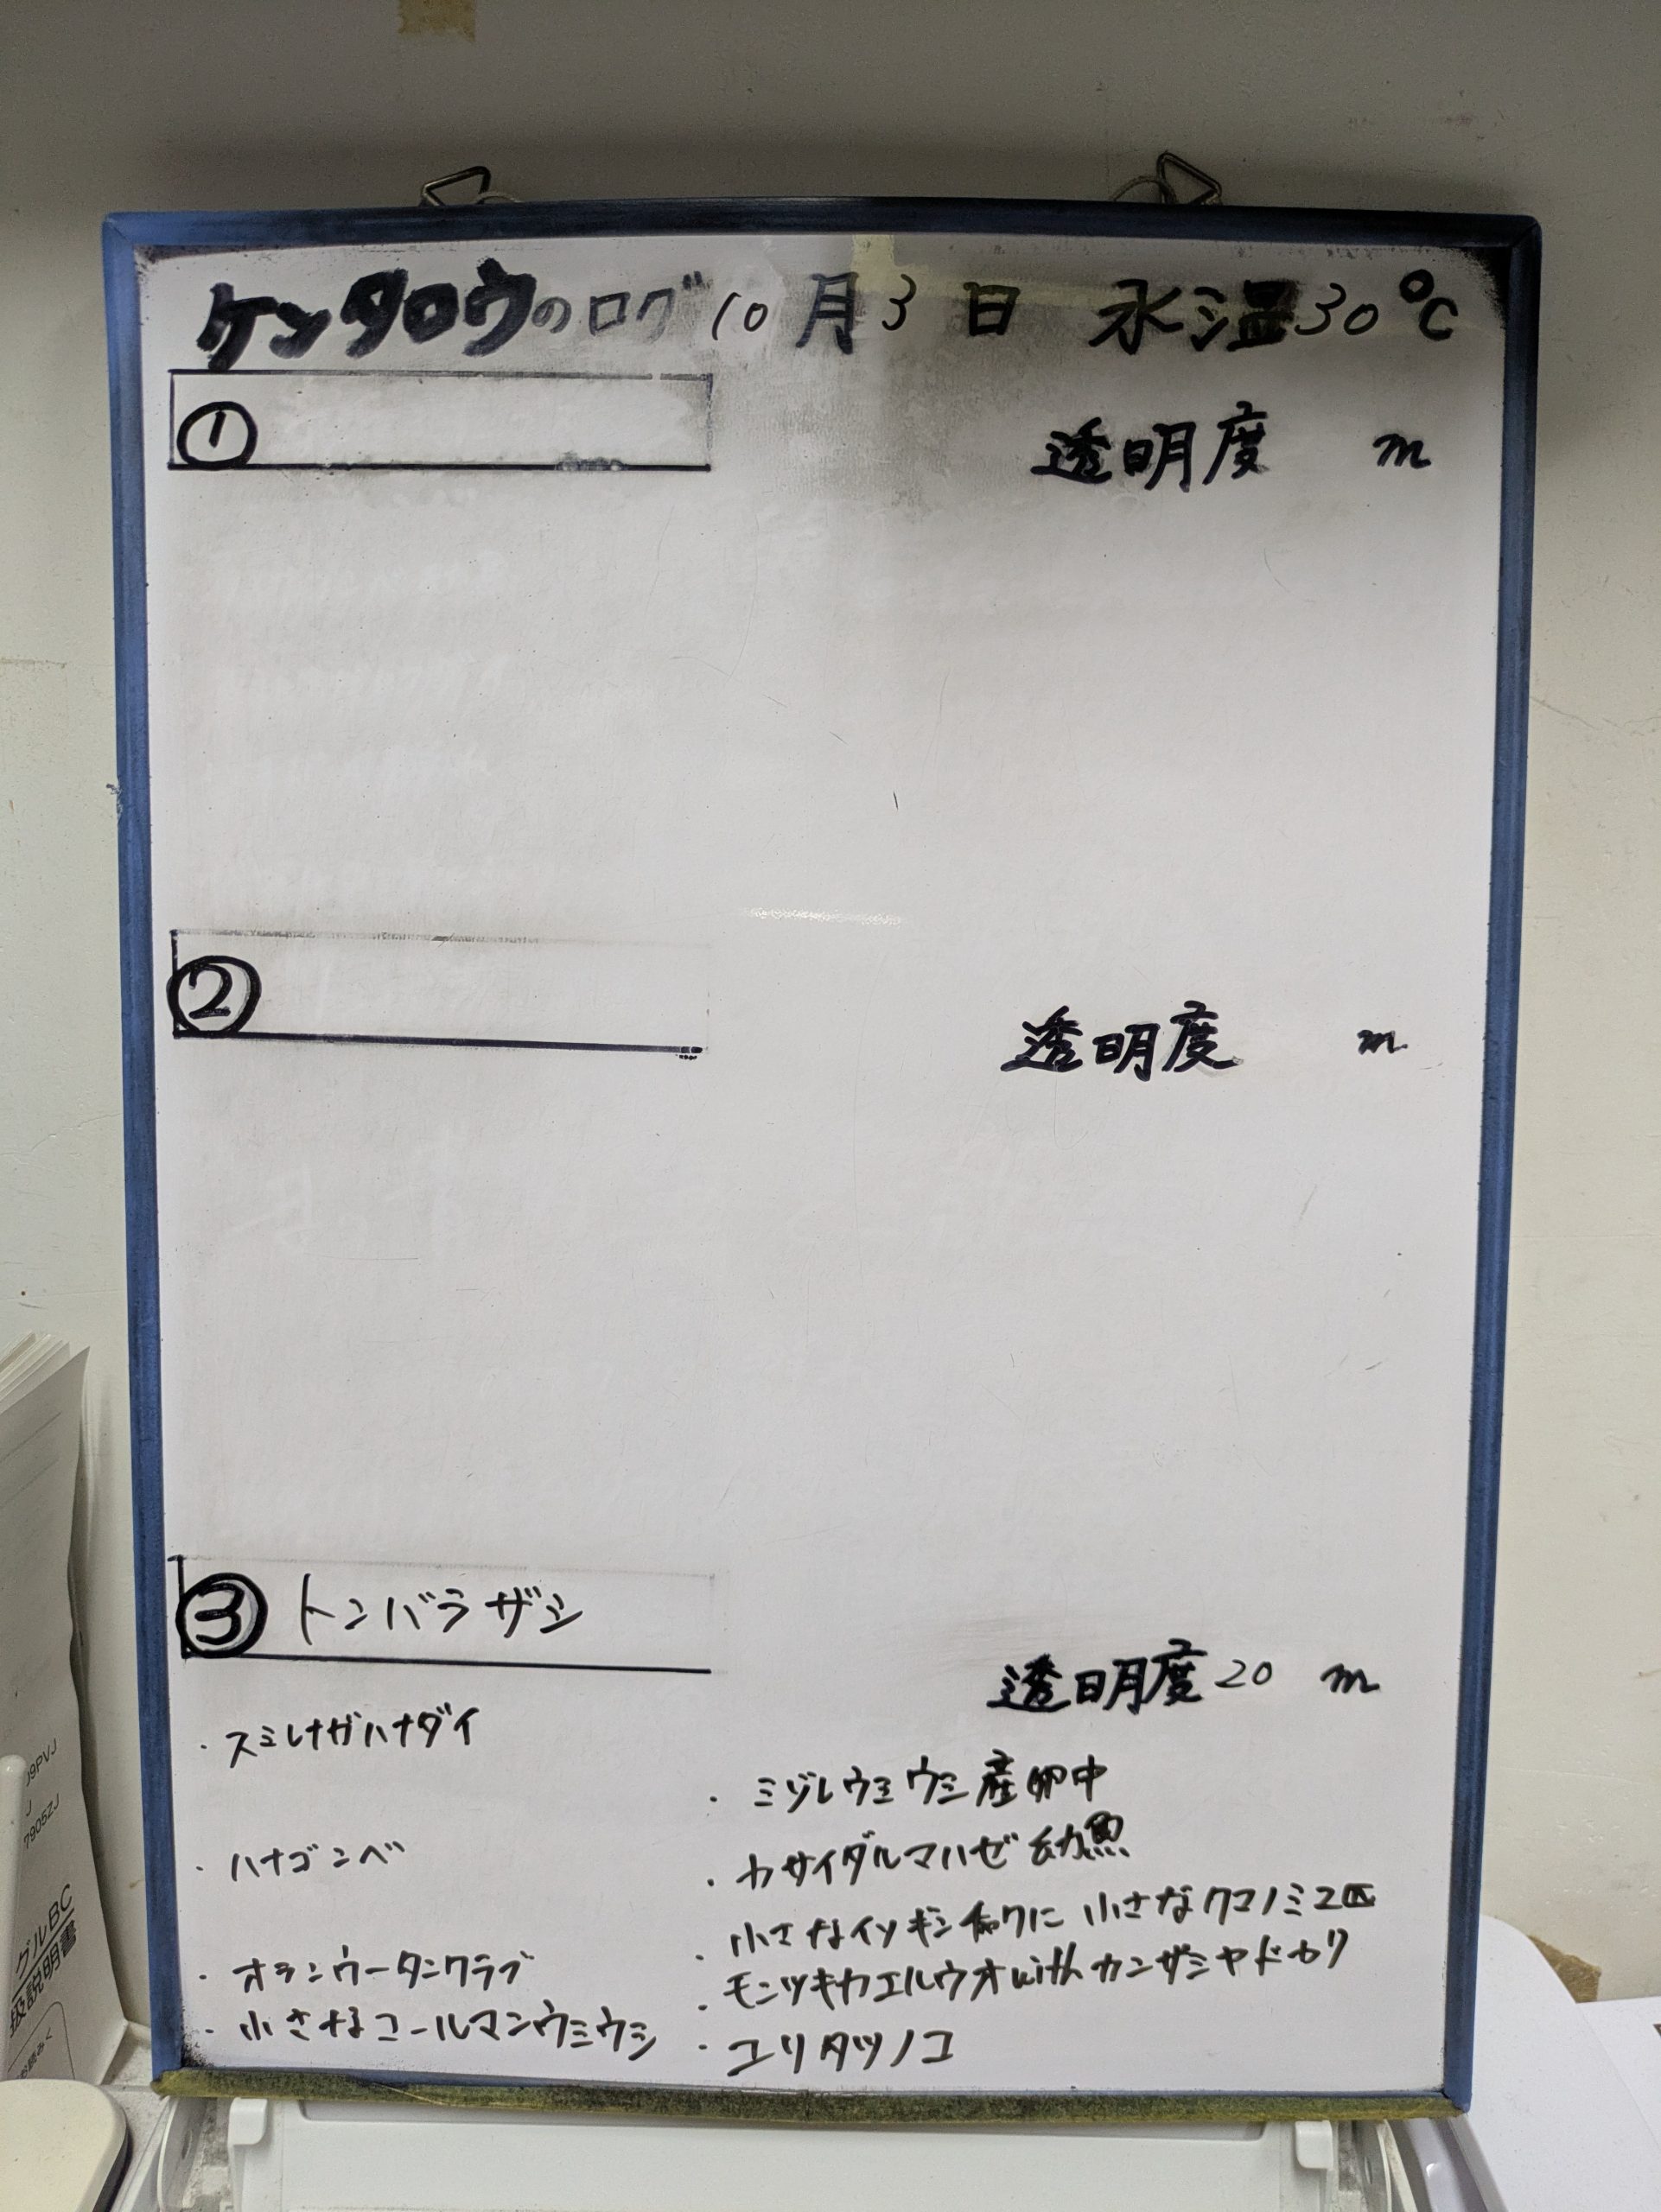 ケンタロウのログ 10月3日 水温30℃
① 透明度 m
② 透明度 m
③ トンバラザシ
透明度20 m
・スミレナガハナダイ
・ハナゴンベ
・オランウータンクラブ
・小さなコールマンウミウシ
・ミゾレウミウシ産卵中
・カサイダルマハゼ幼魚
・小さなイソギンチャクに小さなクマノミ2匹
・モンツキカエルウオwithカンザシヤドカリ
・ユリタツノコ
グルBC
扱説明書
J9PVJ
J
7905ZJ